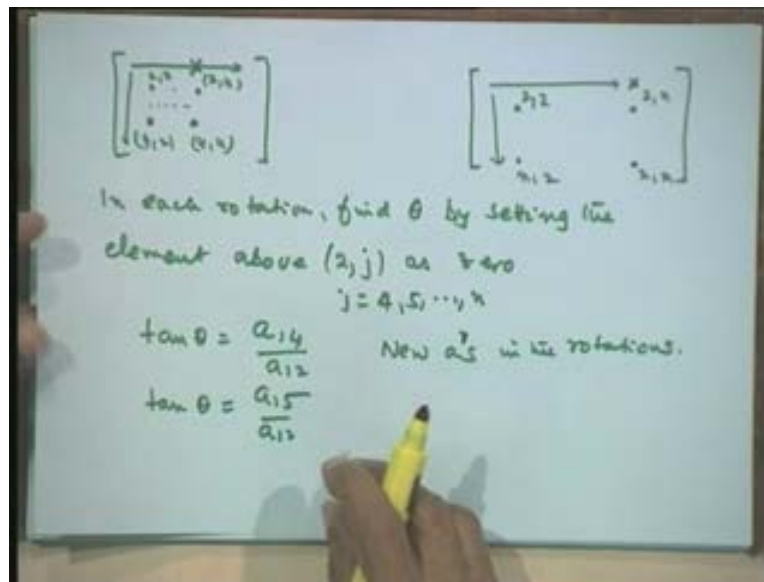 2,2 (2,4)
(4,2) (4,4)
2,2 2,n
n,2 n,n
In each rotation, find θ by setting the
element above (2,j) as zero
j = 4,5,...,n
tan θ = a14 / a12
New a's in the rotations.
tan θ = a15 / a12